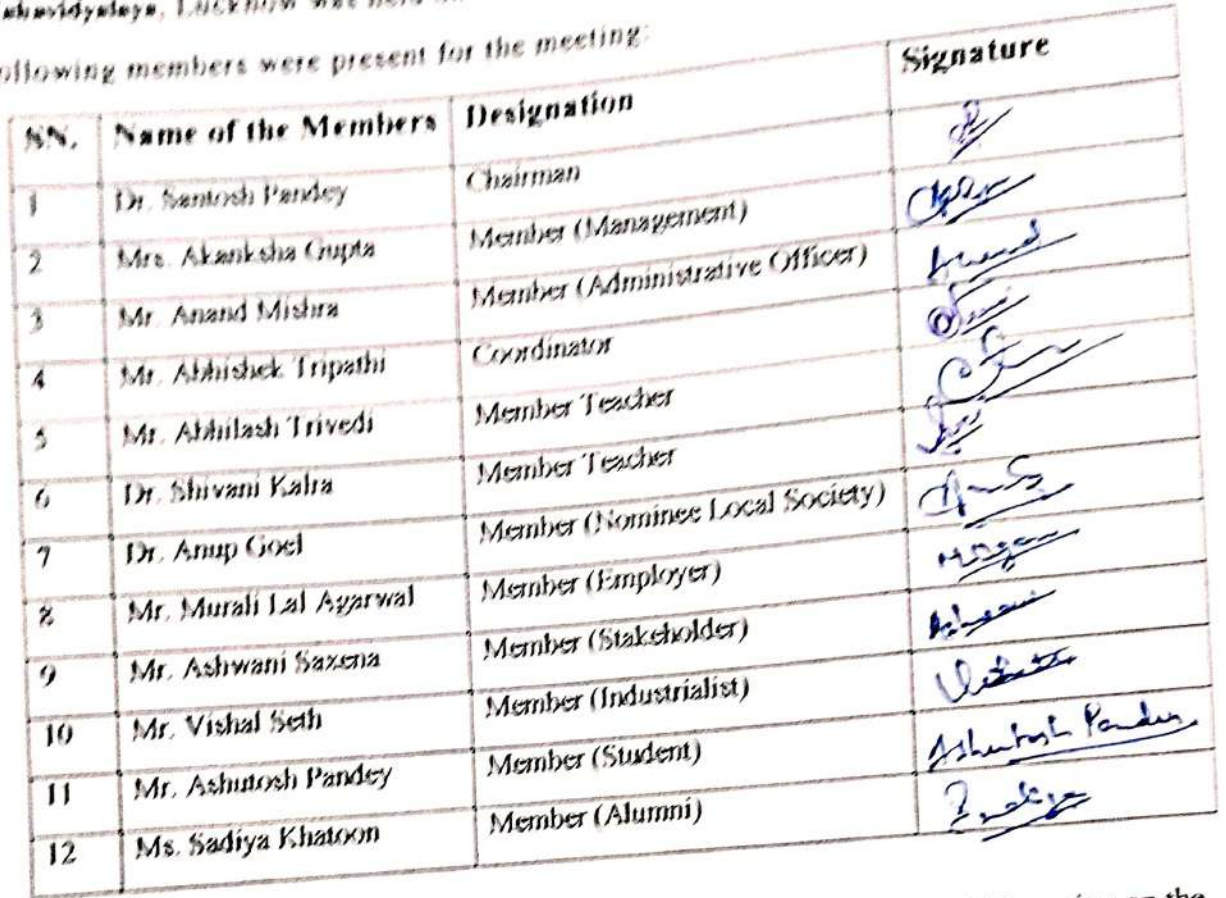 Mahavidyalaya, Lucknow was held
ollowing members were present for the meeting:
SN. Name of the Members Designation Signature
1 Dr. Santosh Pandey Chairman
2 Mrs. Akanksha Gupta Member (Management)
3 Mr. Anand Mishra Member (Administrative Officer) Anand
4 Mr. Abhishek Tripathi Coordinator
5 Mr. Abhilash Trivedi Member Teacher
6 Dr. Shivani Kalra Member Teacher
7 Dr. Anup Goel Member (Nominee Local Society)
8 Mr. Murali Lal Agarwal Member (Employer)
9 Mr. Ashwani Saxena Member (Stakeholder) Ashwani
10 Mr. Vishal Seth Member (Industrialist)
11 Mr. Ashutosh Pandey Member (Student) Ashutosh Pandey
12 Ms. Sadiya Khatoon Member (Alumni)
on the